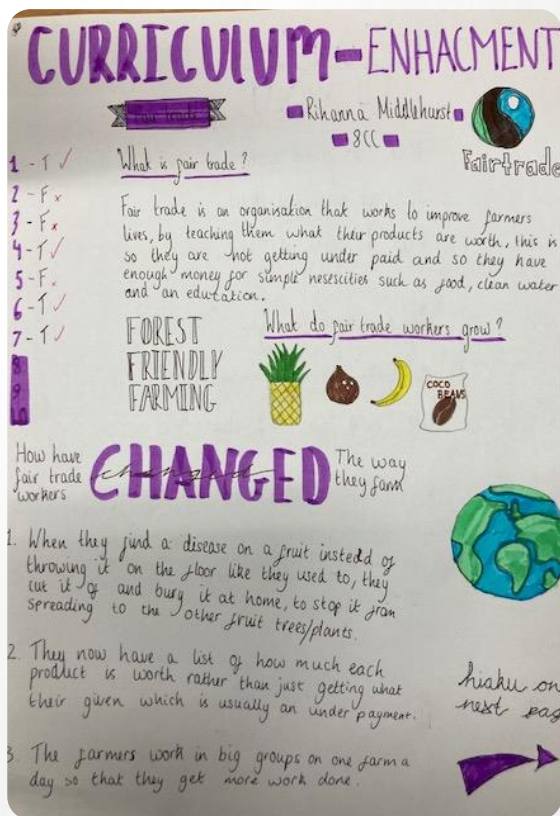 CURRICULUM - ENHACMENT
Fair trade
Rihanna Middlehurst
8CC
Fairtrade
1 - T ✓
2 - F x
3 - F x
4 - T ✓
5 - F x
6 - T ✓
7 - T ✓
8
9
10
What is fair trade?
Fair trade is an organisation that works to improve farmers
lives, by teaching them what their products are worth, this is
so they are not getting under paid and so they have
enough money for simple nesescities such as food, clean water
and an education.
FOREST
FRIENDLY
FARMING
What do fair trade workers grow?
COCO
BEANS
How have
fair trade
workers
CHANGED
changed
The way
they farm
1. When they find a disease on a fruit instedd of
throwing it on the floor like they used to, they
cut it of and bury it at home, to stop it fran
spreading to the other fruit trees/plants.
2. They now have a list of how much each
product is worth rather than just getting what
their given which is usually an under payment.
3. The farmers work in big groups on one farm a
day so that they get more work done.
hiaku on
next pag